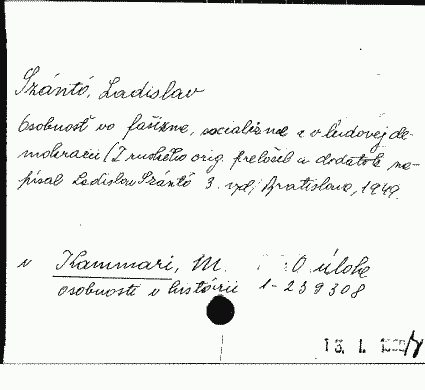 Szántó, Ladislav
Osobnosť vo fašizme, socializme a v ľudovej de-
mokracii / Z ruského orig. preložil a dodatok na-
písal Ladislav Szántó 3. vyd., Bratislava, 1949.
v Kammari, M. O úlohe
osobnosti v histórii 1-239308
13. I.